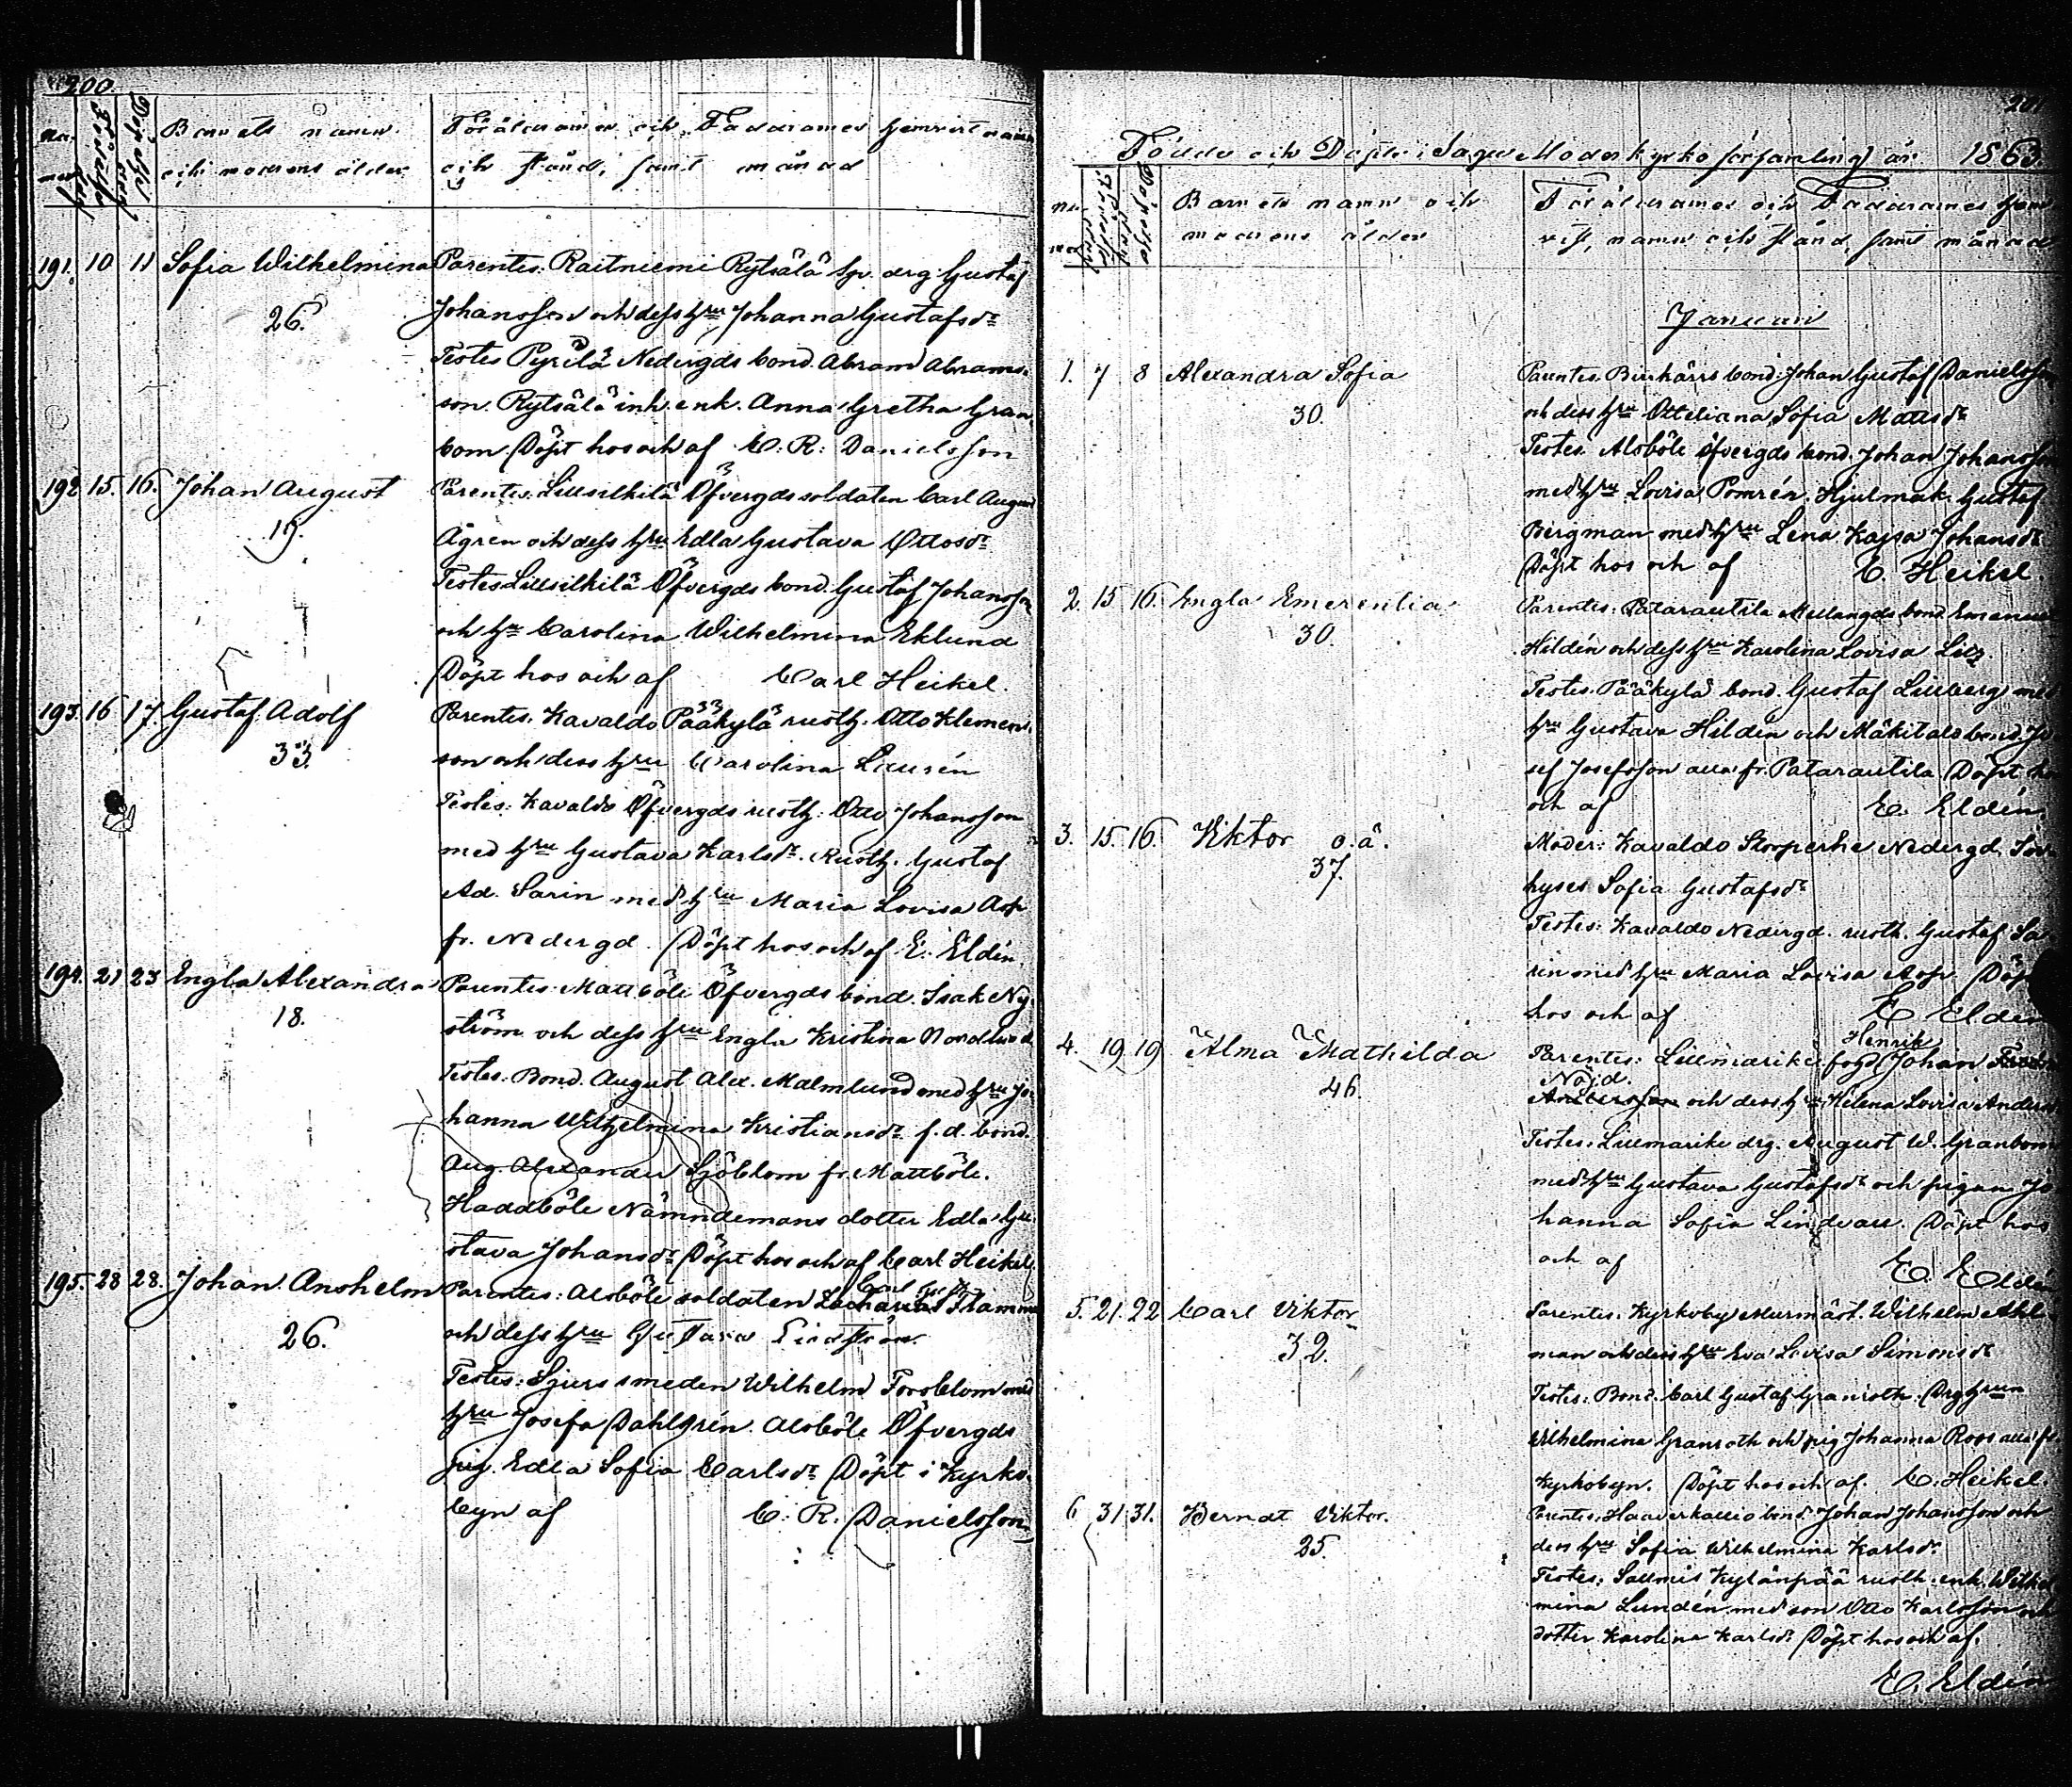 200
Barnets namn
och modrens ålder
Föräldrarnes och Faddrarnes hemvist namn
och stånd, samt månad
191. 10 11 Sofia Wilhelmina
26.
Parentes: Raitniemi Rytsälä drg Gustaf
Johansson och dess hru Johanna Gustafsdr
Testes Pyrilä Nedergds bond. Abram Abrams-
son. Rytsälä inh. enk. Anna Gretha Gran-
bom. Döpt hos och af C. R. Danielsson
192 15. 16. Johan August
19.
Parentes: Lillsilkilä Öfvergds soldaten Carl August
Ågren och dess hru Edla Gustava Ottosdr
Testes Lillsilkilä Öfvergds bond. Gustaf Johansson
och hu Carolina Wilhelmina Eklund
Döpt hos och af Carl Heikel.
193. 16 17. Gustaf Adolf
33.
Parentes. Kavaldo Pääkylä rusth. Otto Klemens-
son och dess hru Carolina Laurén
Testes: Kavaldo Öfvergds rusth: Otto Johansson
med hru Gustava Karlsdr. Rusth. Gustaf
Ad. Sarin med hru Maria Lovisa Asp
fr. Nedergd. Döpt hos och af E. Eldén.
194. 21 23 Engla Alexandra
18.
Parentes: Mattböle Öfvergds bond. Isak Ny-
ström och dess hru Engla Kristina Nordlund
Testes. Bond. August Alex. Malmlund med hru Jo-
hanna Wilhelmina Kristiansdr f.d. bond.
Aug. Alexander Sjöblom fr. Mattböle.
Haddböle Nämndemans dotter Edla Gu-
stava Johansdr Döpt hos och af Carl Heikel
195. 28 28. Johan Anshelm
26.
Carl
Parentes: Alsböle soldaten Zacharias Flamma
och dess hru Gustava Lindström.
Testes: Sjurs smeden Wilhelm Forsblom med
hru Josefa Dahlgrén. Alsböle Öfvergds
pig. Edla Sofia Carlsdr Döpt i Kyrko-
byn af C. R. Danielsson
201
Födde och Döpte i Sagu Moderkyrko församling år 1863.
Barnets namn och
modrens ålder
Föräldrarnes och Faddrarnes hem-
vist, namn och stånd, samt månad
Januari
1. 7 8 Alexandra Sofia
30.
Parentes. Birkärrs bond: Johan Gustaf Danielsson
och dess hru Otteliana Sofia Mattsdr
Testes. Alsböle öfvergds bond. Johan Johansson
med hru Lovisa Pomrén. Hjulmak. Gustaf
Bergman med hru Lena Kajsa Johansdr
Döpt hos och af C. Heikel.
2. 15 16. Engla Emerentia
30.
Parentes: Patarautila Mellangds bond. Emanuel
Hildén och dess hru Karolina Lovisa
Testes. Pääkylä bond. Gustaf Lillberg med
hru Gustava Hildén och Mäkitalo bond. Jo-
sef Josefsson alla fr. Patarautila Döpt hos
och af E. Eldén.
3. 15. 16. Viktor o.ä.
37.
Moder: Kavaldo Storperhe Nedergd.
hyses Sofia Gustafsdr
Testes: Kavaldo Nedergd. rusth. Gustaf Sa-
rin med hru Maria Lovisa Asp. Döpt
hos och af E Eldén
4. 19 19 Alma Mathilda
46.
Henrik
Parentes: Lillmarike fogd. Johan
Nöjd.
Andersson och dess hru Helena Lovisa Anders
Testes: Lillmarike drg. August W. Granbom
med hru Gustava Gustafsdr och pigan Jo-
hanna Sofia Lindvall. Döpt hos
och af E. Eldén
5. 21. 22 Carl Viktor
32.
Parentes: Kyrkoby Murmäst. Wilhelm Ahl-
man och dess hru Eva Lovisa Simonsdr
Testes: Bond. Carl Gustaf Granroth. Drghrun
Wilhelmina Granroth och pig Johanna Roos alla fr
Kyrkobyn. Döpt hos och af. C. Heikel.
6 31 31. Berndt Viktor.
25.
Parentes. Haaverkallio bond. Johan Johansson och
dess hru Sofia Wilhelmina Karlsdr
Testes: Salmis Kylänpää rusth. enk. Wilhel-
mina Lundén med son Otto Karlsson och
dotter Karolina Karlsdr Döpt hos och af.
E. Eldén